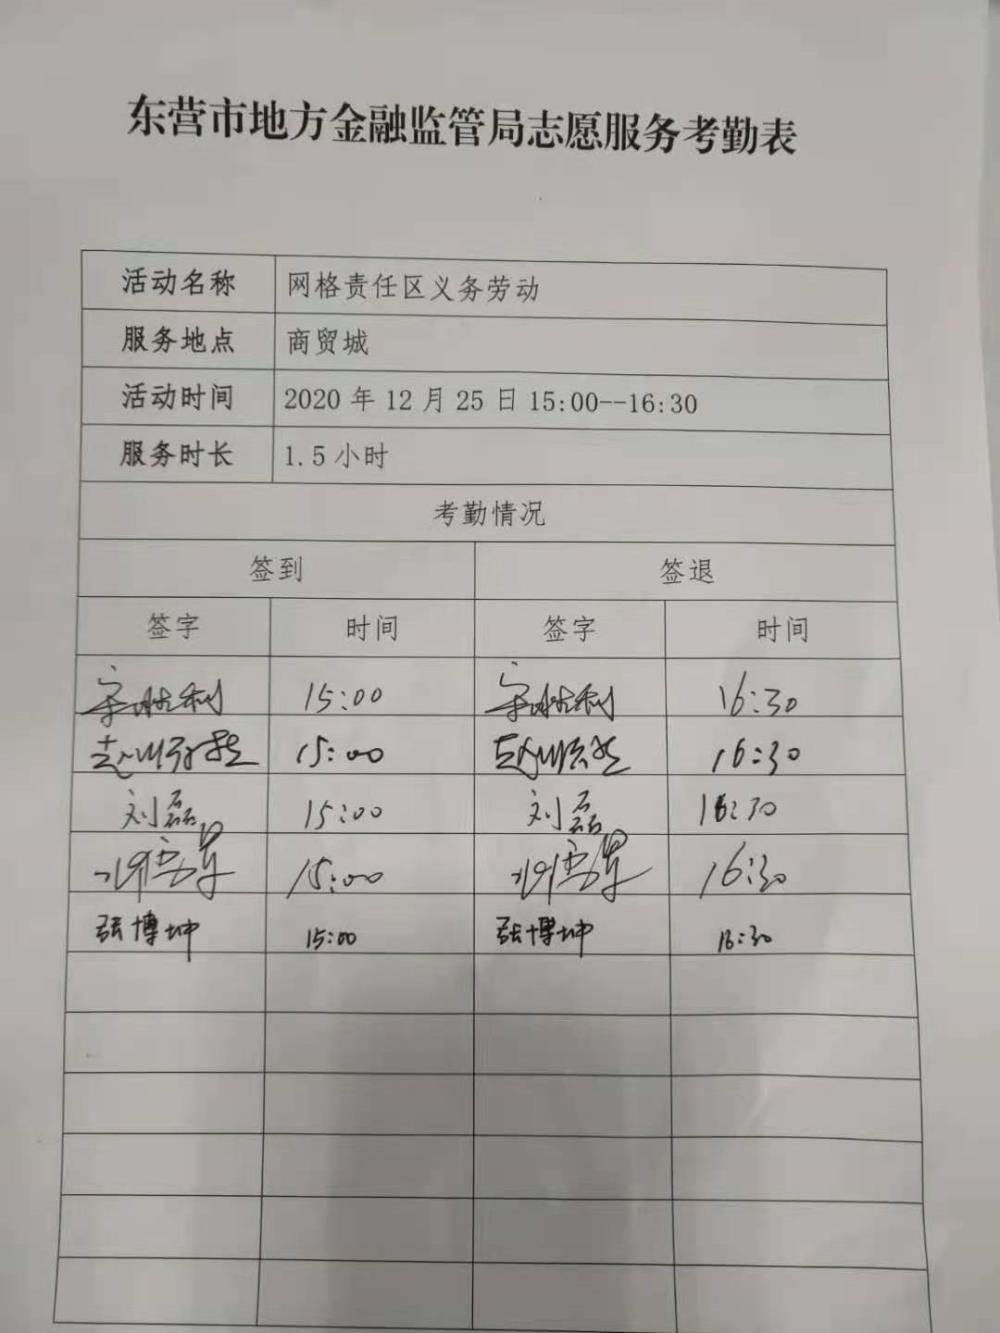 东营市地方金融监管局志愿服务考勤表
活动名称 网格责任区义务劳动
服务地点 商贸城
活动时间 2020 年 12 月 25 日 15:00--16:30
服务时长 1.5 小时
考勤情况
签到 签退
签字 时间 签字 时间
15:00 16:30
15:00 16:30
刘磊 15:00 刘磊 16:30
15:00 16:30
张博坤 15:00 张博坤 16:30